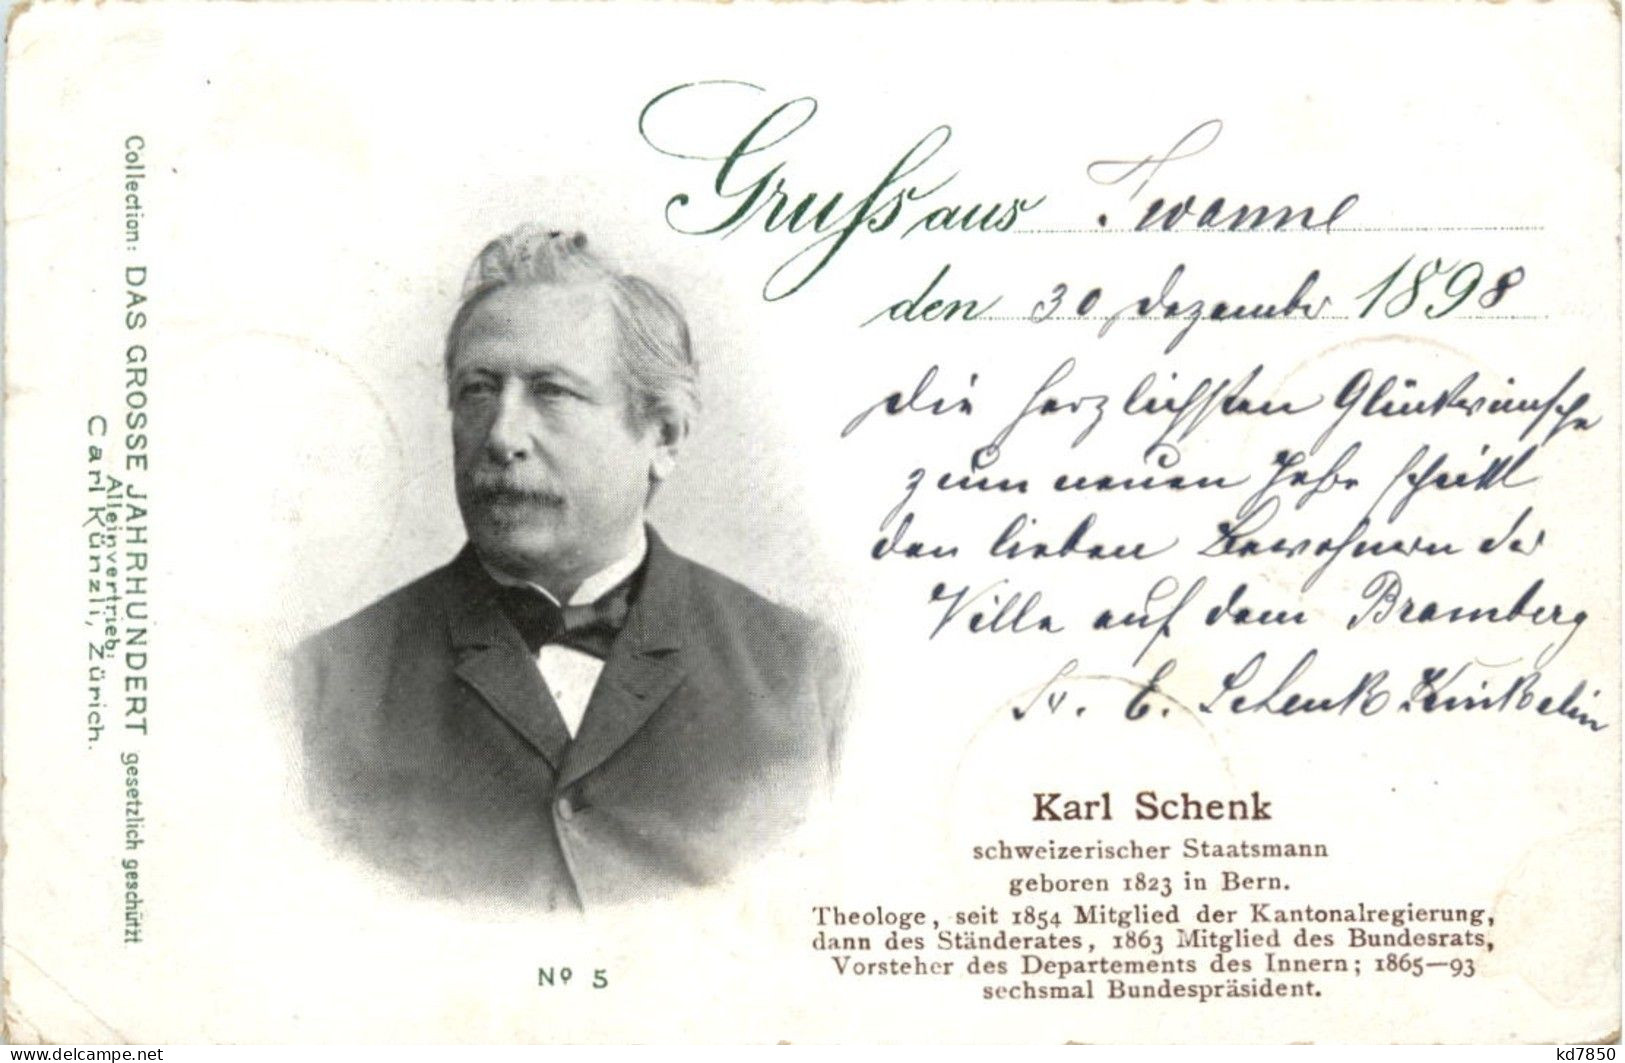 Gruss aus Twanne
den 30. Dezember 1898
Die herzlichsten Glückwünsche
zum neuen Jahre schickt
den lieben Bewohnern der
Villa auf dem Bramberg
E. Schenk Kinkelin
Karl Schenk
schweizerischer Staatsmann
geboren 1823 in Bern.
Theologe, seit 1854 Mitglied der Kantonalregierung,
dann des Ständerates, 1863 Mitglied des Bundesrats,
Vorsteher des Departements des Innern; 1865—93
sechsmal Bundespräsident.
Nº 5
Collection: DAS GROSSE JAHRHUNDERT gesetzlich geschützt
Alleinvertrieb:
Carl Künzli, Zürich.
the-postcard.com / Delcampe.net
kd7850